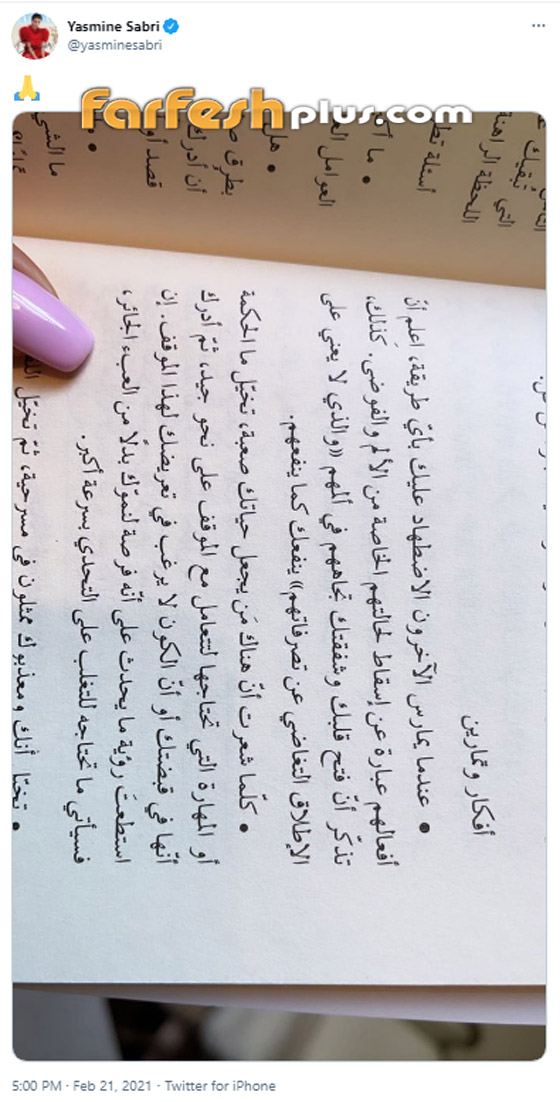 Yasmine Sabri
@yasminesabri
farfeshplus.com
التي
اللحظة الراهنة
أسئلة
• ما
العوامل
• هل
أن أدرك
ما الشيء
أفكار وتمارين
• عندما يمارس الآخرون الاضطهاد عليك بأيّ طريقة، اعلم أنّ
أفعالهم عبارة عن إسقاط لحالتهم الخاصة من الألم والفوضى. كَذلك،
تذكّر أنّ فتح قلبك وشفقتك تجاههم في ألمهم ((والذي لا يعني على
الإطلاق التغاضي عن تصرفاتهم)) ينفعك كما ينفعهم.
• كلّما شعرت أنّ هناك مَن يجعل حياتك صعبة، تخيّل ما الحكمة
أو المهارة التي تحتاجها لتتعامل مع الموقف على نحو جيد، ثمّ أدرك
أنّها في قبضتك أو أنّ الكون لا يرغب في تعريضك لهذا الموقف. إن
استطعتَ رؤية ما يحدث على أنّه فرصة لنموّك بدلًا من العبء الجائر،
فسيأتي ما تحتاجه للتغلب على التحدي بسرعة أكبر.
• أنك ومعذبوك ممثلون في مسرحية، ثمّ تخيّل
5:00 PM · Feb 21, 2021 · Twitter for iPhone